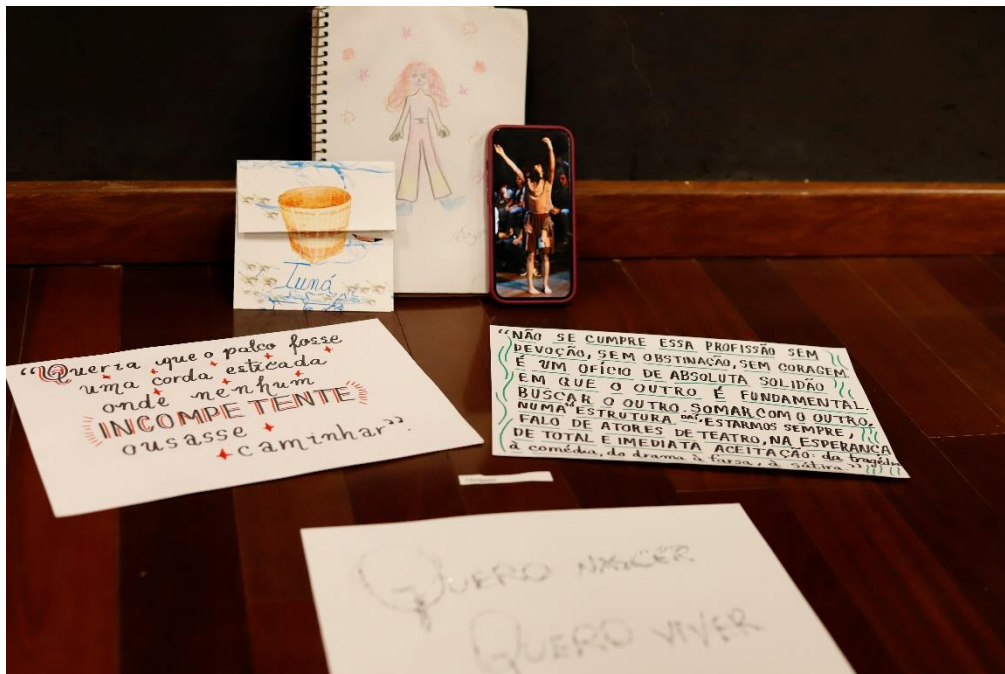 Tuná
“Queria que o palco fosse
uma corda esticada
onde nenhum
INCOMPETENTE
ousasse
caminhar”.
“NÃO SE CUMPRE ESSA PROFISSÃO SEM
DEVOÇÃO, SEM OBSTINAÇÃO, SEM CORAGEM.
É UM OFÍCIO DE ABSOLUTA SOLIDÃO
EM QUE O OUTRO É FUNDAMENTAL.
BUSCAR O OUTRO. SOMAR COM O OUTRO,
NUMA ESTRUTURA ESTARMOS SEMPRE,
FALO DE ATORES DE TEATRO, NA ESPERANÇA
DE TOTAL E IMEDIATA ACEITAÇÃO: da tragédia
à comédia, do drama à farsa, à sátira.”
QUERO NASCER
QUERO VIVER